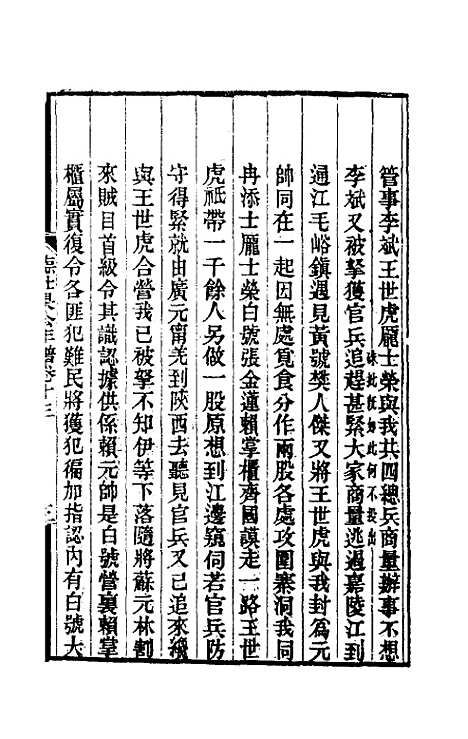 管事李斌王世虎龐士榮與我共四總兵商量辦事不想
李斌又被拏獲官兵追趕甚緊大家商量逃過嘉陵江到
硃批既如此何不投出
通江毛峪鎮遇見黃號樊人傑又將王世虎與我封爲元
帥同在一起因無處覓食分作兩股各處攻圍寨洞我同
冉添士龐士榮白號張金蓮賴掌櫃齊國謨走一路王世
虎祗帶一千餘人另做一股原想到江邊窺伺若官兵防
守得緊就由廣元甯羌到陝西去聽見官兵又已追來纔
與王世虎合營我已被拏不知伊等下落隨將蘇元林割
來賊目首級令其識認據供係賴元帥是白號營裏賴掌
櫃屬實復令各匪犯難民將獲犯徧加指認內有白號大
公年譜卷十三
三